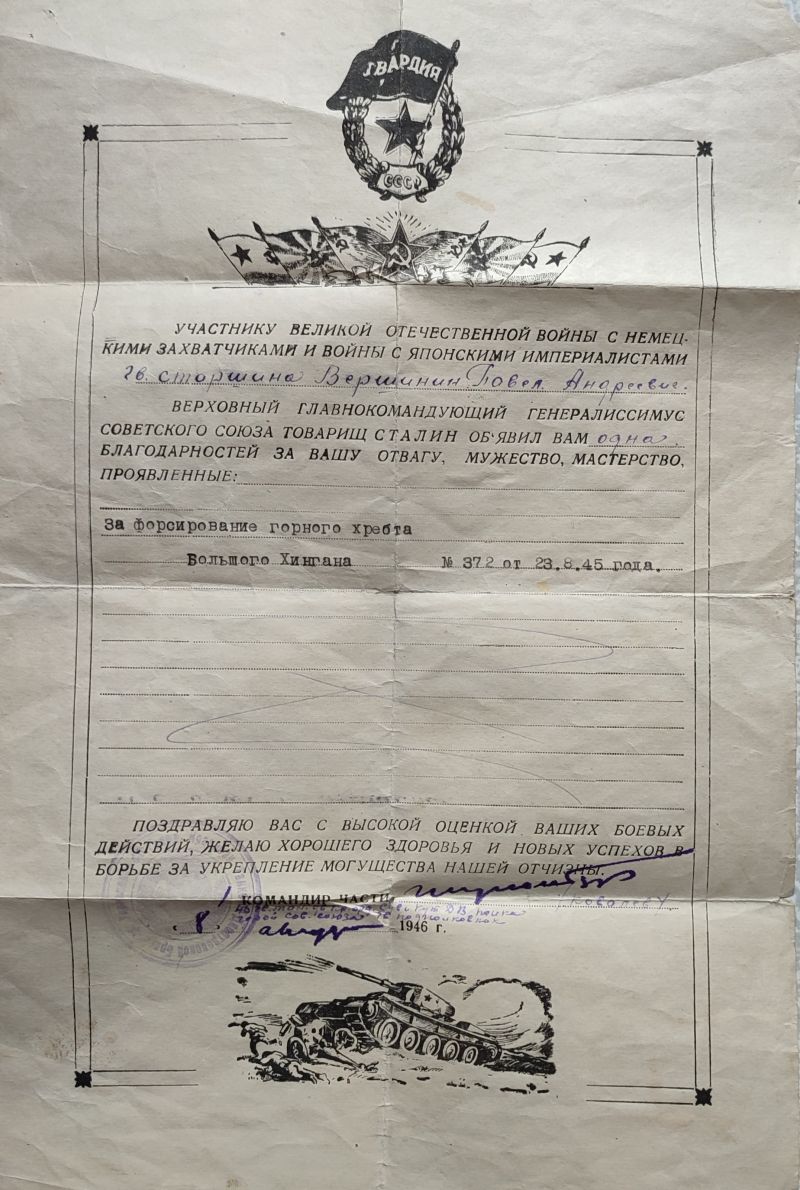 ГВАРДИЯ
СССР
УЧАСТНИКУ ВЕЛИКОЙ ОТЕЧЕСТВЕННОЙ ВОЙНЫ С НЕМЕЦ-
КИМИ ЗАХВАТЧИКАМИ И ВОЙНЫ С ЯПОНСКИМИ ИМПЕРИАЛИСТАМИ
гв. старшина Вершинин Павел Андреевич.
ВЕРХОВНЫЙ ГЛАВНОКОМАНДУЮЩИЙ ГЕНЕРАЛИССИМУС
СОВЕТСКОГО СОЮЗА ТОВАРИЩ СТАЛИН ОБ'ЯВИЛ ВАМ одна
БЛАГОДАРНОСТЕЙ ЗА ВАШУ ОТВАГУ, МУЖЕСТВО, МАСТЕРСТВО,
ПРОЯВЛЕННЫЕ:
За форсирование горного хребта
Большого Хингана № 372 от 23.8.45 года.
ПОЗДРАВЛЯЮ ВАС С ВЫСОКОЙ ОЦЕНКОЙ ВАШИХ БОЕВЫХ
ДЕЙСТВИЙ, ЖЕЛАЮ ХОРОШЕГО ЗДОРОВЬЯ И НОВЫХ УСПЕХОВ В
БОРЬБЕ ЗА УКРЕПЛЕНИЕ МОГУЩЕСТВА НАШЕЙ ОТЧИЗНЫ.
КОМАНДИР ЧАСТИ
герой сов. союза гв подполковник
„8" 1946 г.